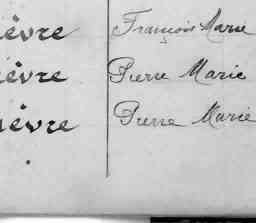 ièvre François Marie
ièvre Pierre Marie
ièvre Pierre Marie